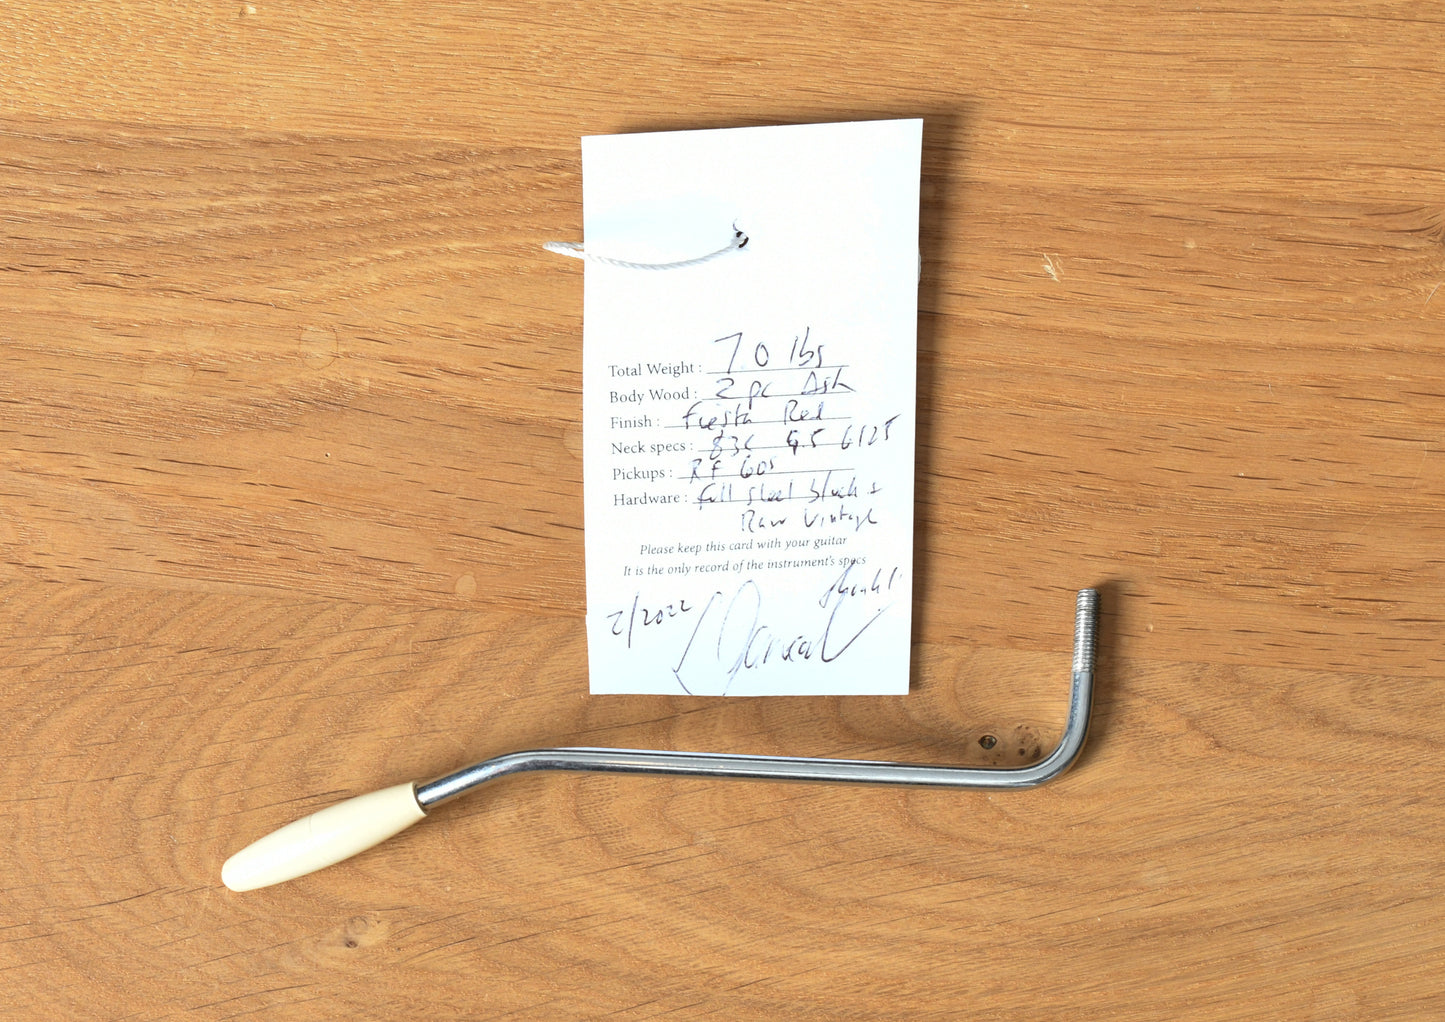 Total Weight : 7.0 lbs
Body Wood : 2 pc Ash
Finish : Fiesta Red
Neck specs : 83c 9.5 6125
Pickups : RF 60s
Hardware : Full steel block &
Raw Vintage
Please keep this card with your guitar
It is the only record of the instrument's specs
2/2022